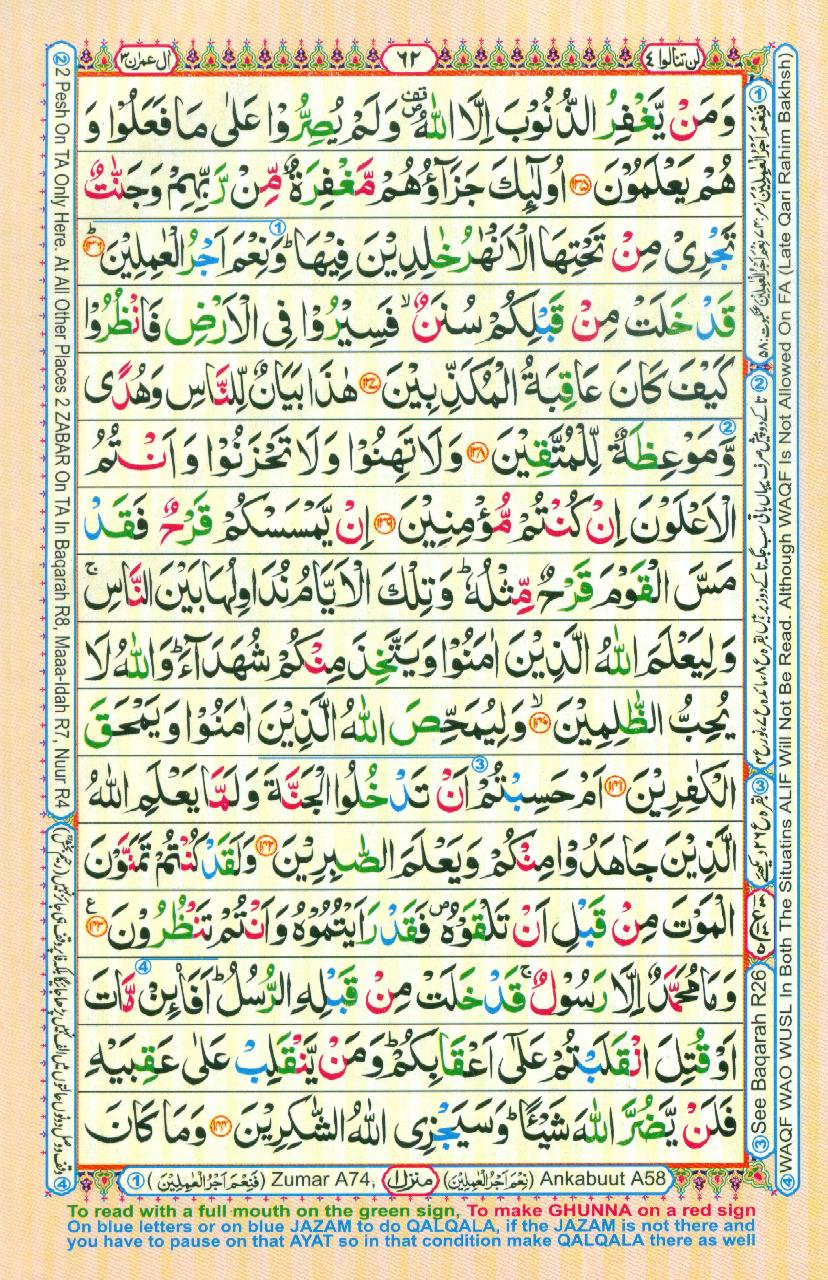 اٰل عمرٰن ٣
٦٢
لن تنالوا ٤
وَمَنْ يَّغْفِرُ الذُّنُوْبَ اِلَّا اللّٰهُ وَلَمْ يُصِرُّوْا عَلٰى مَا فَعَلُوْا وَ
هُمْ يَعْلَمُوْنَ ﴿۱۳۵﴾ اُولٰٓئِكَ جَزَآؤُهُمْ مَّغْفِرَةٌ مِّنْ رَّبِّهِمْ وَجَنّٰتٌ
تَجْرِىْ مِنْ تَحْتِهَا الْاَنْهٰرُ خٰلِدِيْنَ فِيْهَا ؕ وَنِعْمَ اَجْرُ الْعٰمِلِيْنَ ؕ﴿۱۳۶﴾
قَدْ خَلَتْ مِنْ قَبْلِكُمْ سُنَنٌ ۙ فَسِيْرُوْا فِى الْاَرْضِ فَانْظُرُوْا
كَيْفَ كَانَ عَاقِبَةُ الْمُكَذِّبِيْنَ ﴿۱۳۷﴾ هٰذَا بَيَانٌ لِّلنَّاسِ وَهُدًى
وَّمَوْعِظَةٌ لِّلْمُتَّقِيْنَ ﴿۱۳۸﴾ وَلَا تَهِنُوْا وَلَا تَحْزَنُوْا وَاَنْتُمُ
الْاَعْلَوْنَ اِنْ كُنْتُمْ مُّؤْمِنِيْنَ ﴿۱۳۹﴾ اِنْ يَّمْسَسْكُمْ قَرْحٌ فَقَدْ
مَسَّ الْقَوْمَ قَرْحٌ مِّثْلُهٗ ؕ وَتِلْكَ الْاَيَّامُ نُدَاوِلُهَا بَيْنَ النَّاسِ ۚ
وَلِيَعْلَمَ اللّٰهُ الَّذِيْنَ اٰمَنُوْا وَيَتَّخِذَ مِنْكُمْ شُهَدَآءَ ؕ وَاللّٰهُ لَا
يُحِبُّ الظّٰلِمِيْنَ ۙ﴿۱۴۰﴾ وَلِيُمَحِّصَ اللّٰهُ الَّذِيْنَ اٰمَنُوْا وَيَمْحَقَ
الْكٰفِرِيْنَ ﴿۱۴۱﴾ اَمْ حَسِبْتُمْ اَنْ تَدْخُلُوا الْجَنَّةَ وَلَمَّا يَعْلَمِ اللّٰهُ
الَّذِيْنَ جَاهَدُوْا مِنْكُمْ وَيَعْلَمَ الصّٰبِرِيْنَ ﴿۱۴۲﴾ وَلَقَدْ كُنْتُمْ تَمَنَّوْنَ
الْمَوْتَ مِنْ قَبْلِ اَنْ تَلْقَوْهُ ۪ فَقَدْ رَاَيْتُمُوْهُ وَاَنْتُمْ تَنْظُرُوْنَ ﴿۱۴۳﴾ ع
وَمَا مُحَمَّدٌ اِلَّا رَسُوْلٌ ۚ قَدْ خَلَتْ مِنْ قَبْلِهِ الرُّسُلُ ؕ اَفَا۟ئِنْ مَّاتَ
اَوْ قُتِلَ انْقَلَبْتُمْ عَلٰٓى اَعْقَابِكُمْ ؕ وَمَنْ يَّنْقَلِبْ عَلٰى عَقِبَيْهِ
فَلَنْ يَّضُرَّ اللّٰهَ شَيْــًٔا ؕ وَسَيَجْزِى اللّٰهُ الشّٰكِرِيْنَ ﴿۱۴۴﴾ وَمَا كَانَ
② 2 Pesh On TA Only Here. At All Other Places 2 ZABAR On TA In Baqarah R8, Maaa-Idah R7, Nuur R4
③ See Baqarah R26
④ WAQF WAO WUSL In Both The Situatins ALIF Will Not Be Read. Although WAQF Is Not Allowed On FA (Late Qari Rahim Bakhsh)
① (فَنِعْمَ اَجْرُ الْعٰمِلِيْنَ) Zumar A74, منزل ١ (نِعْمَ اَجْرُ الْعٰمِلِيْنَ) Ankabuut A58
To read with a full mouth on the green sign, To make GHUNNA on a red sign
On blue letters or on blue JAZAM to do QALQALA, if the JAZAM is not there and
you have to pause on that AYAT so in that condition make QALQALA there as well